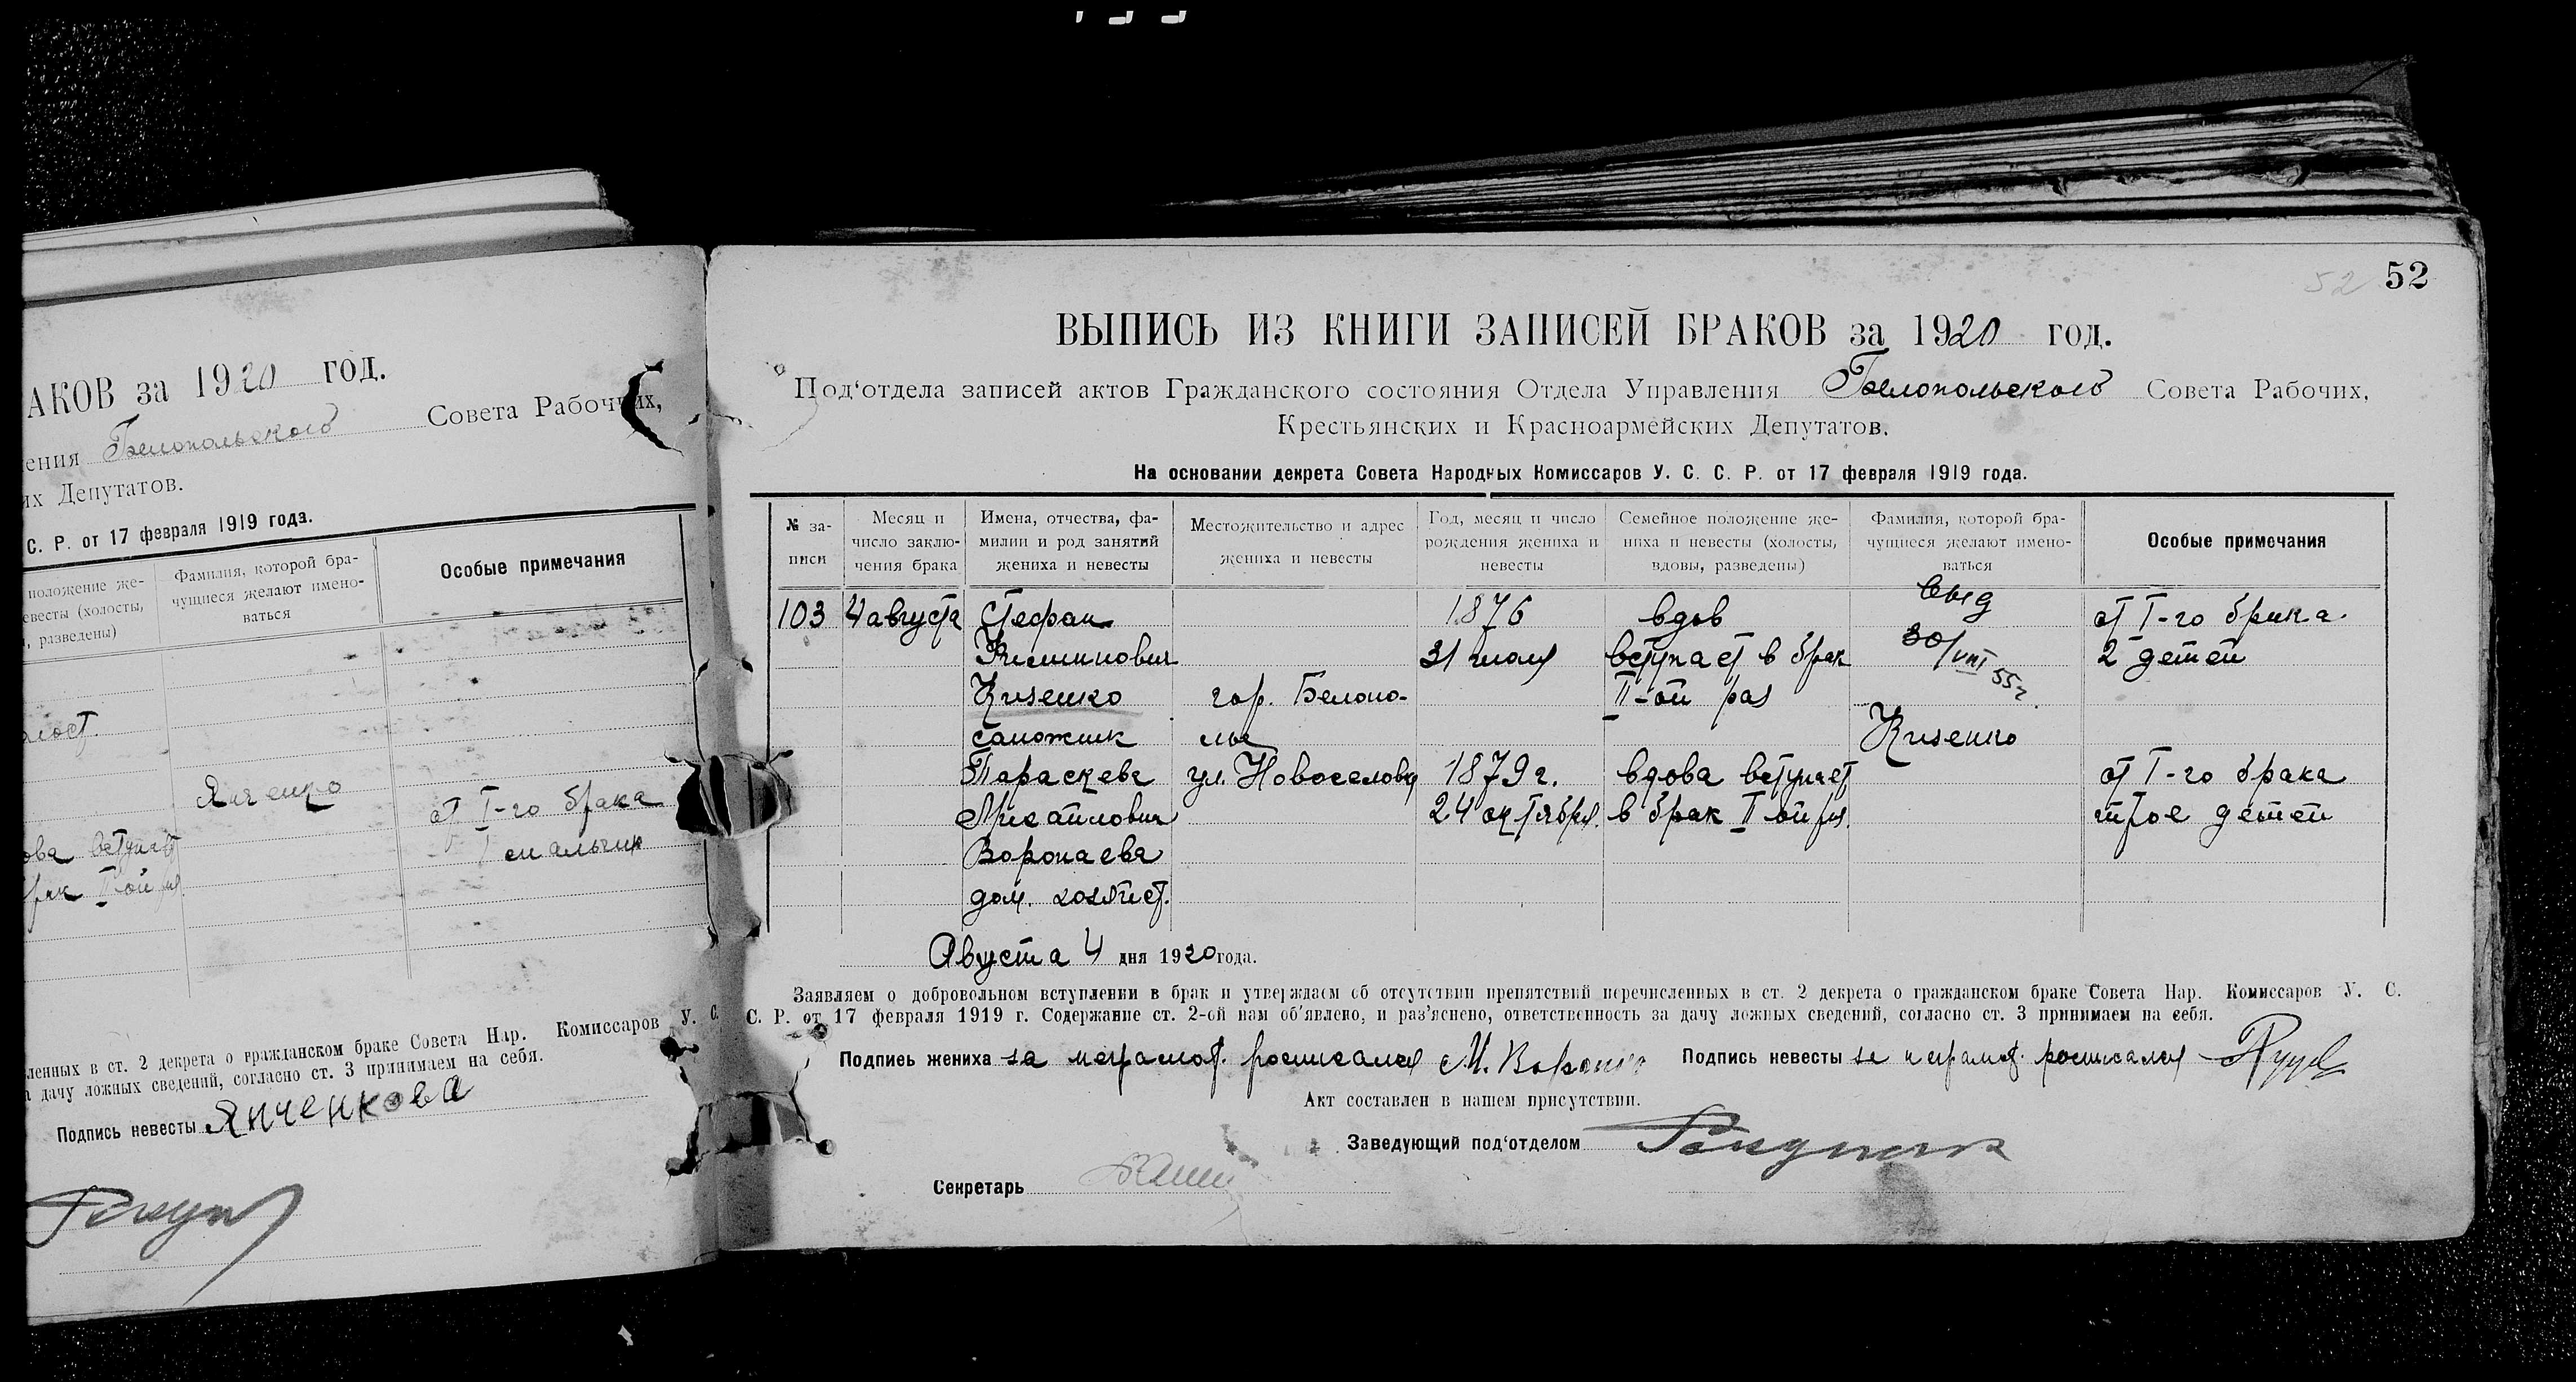 АКОВ за 1920 год.
ения Белопольского Совета Рабочих,
их Депутатов.
С. Р. от 17 февраля 1919 года.
положение же-
евесты (холосты,
, разведены)
Фамилия, которой бра-
чущиеся желают имено-
ваться
Особые примечания
Янченко
от I-го брака
I мальчик
ова вступает
брак II-ой
ленных в ст. 2 декрета о гражданском браке Совета Нар. Комиссаров У. С.
а дачу ложных сведений, согласно ст. 3 принимаем на себя.
Подпись невесты Янченкова
52 52
ВЫПИСЬ ИЗ КНИГИ ЗАПИСЕЙ БРАКОВ за 1920 год.
Под‘отдела записей актов Гражданского состояния Отдела Управления Белопольского Совета Рабочих,
Крестьянских и Красноармейских Депутатов.
На основании декрета Совета Народных Комиссаров У. С. С. Р. от 17 февраля 1919 года.
№ за-
писи
Месяц и
число заклю-
чения брака
Имена, отчества, фа-
милии и род занятий
жениха и невесты
Местожительство и адрес
жениха и невесты
Год, месяц и число
рождения жениха и
невесты
Семейное положение же-
ниха и невесты (холосты,
вдовы, разведены)
Фамилия, которой бра-
чущиеся желают имено-
ваться
Особые примечания
103
4 августа
Стефан
Кизенко
сапожник
Параскева
Михайловна
Воропаева
дом. хозяист.
гор. Белопо-
лье
ул. Новоселовка
1876
31 июля
1879 г.
24 октября.
вдов
вступает в брак
II-ой раз
вдова вступает
в брак II ой раз.
Выд
30/VIII 55 г.
Кизенко
от I-го брака.
2 детей
от I-го брака
трое детей
Августа 4 дня 1920 года.
Заявляем о добровольном вступлении в брак и утверждаем об отсутствии препятствий перечисленных в ст. 2 декрета о гражданском браке Совета Нар. Комиссаров У. С.
С. Р. от 17 февраля 1919 г. Содержание ст. 2-ой нам об‘явлено, и раз‘яснено, ответственность за дачу ложных сведений, согласно ст. 3 принимаем на себя.
Подпись жениха за неграмот. росписался М. Подпись невесты за неграмот. росписался
Акт составлен в нашем присутствии.
Заведующий под‘отделом
Секретарь